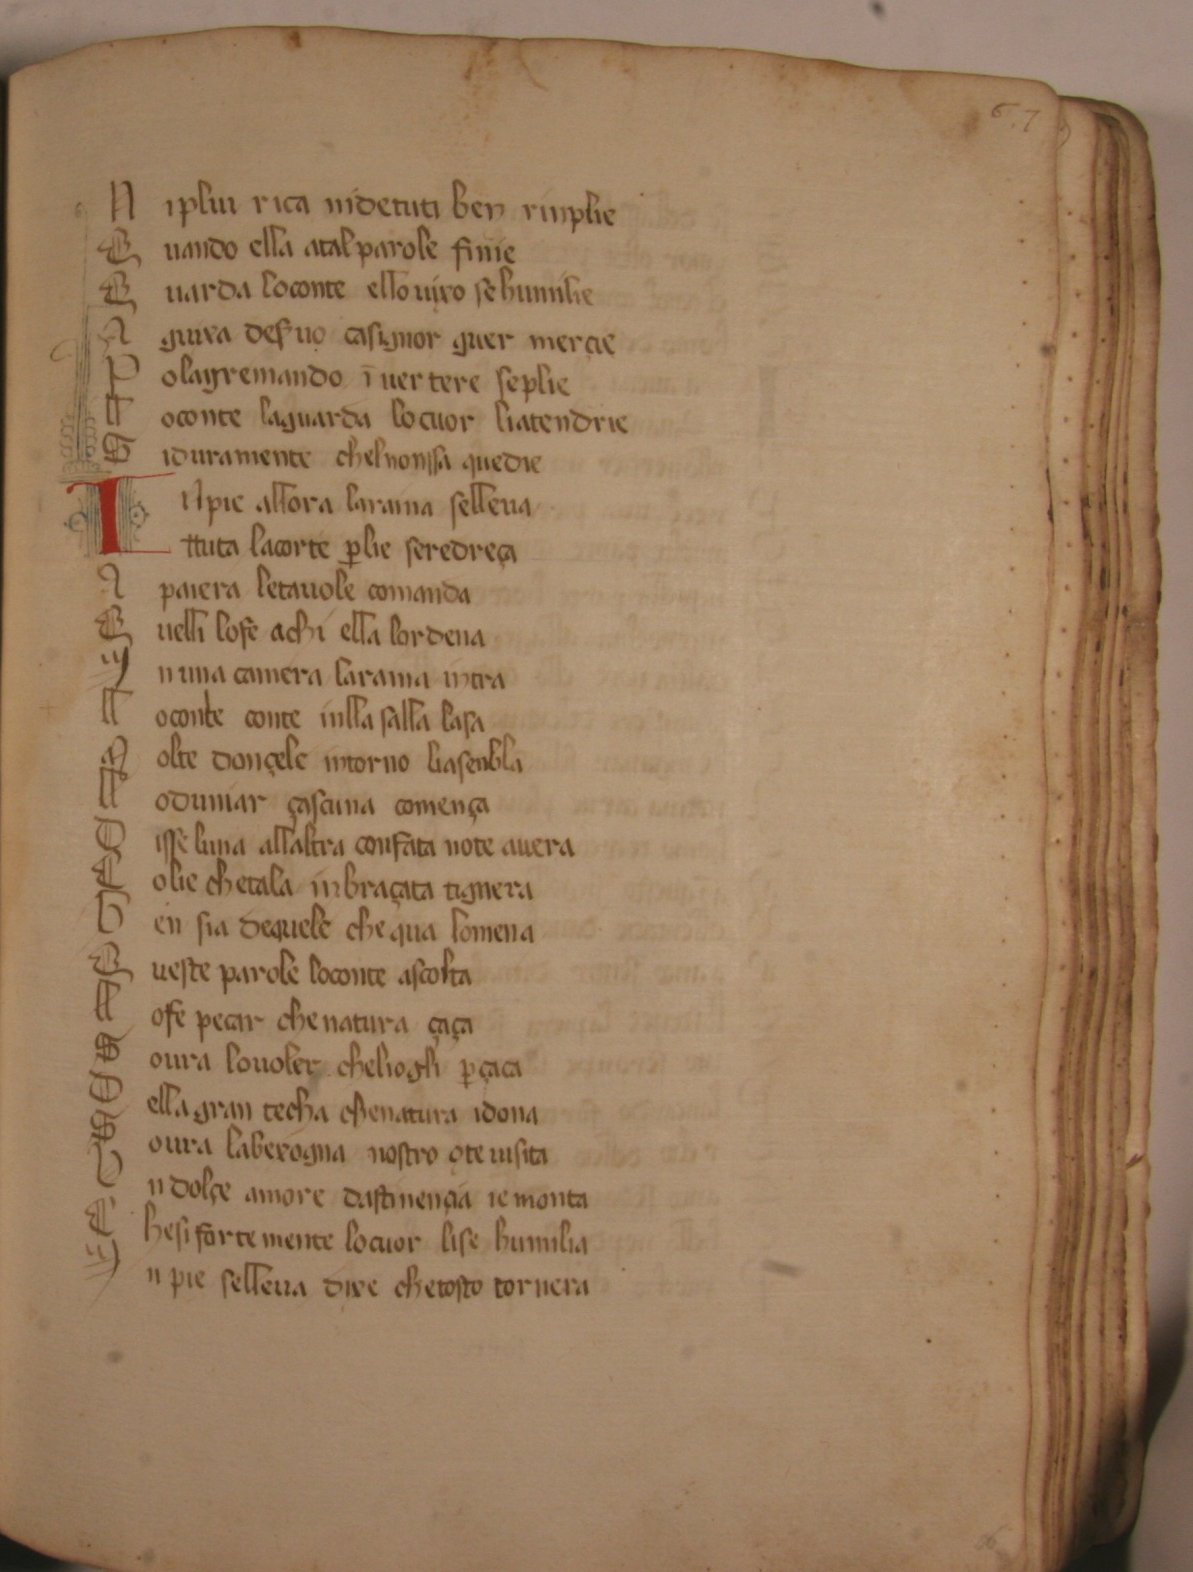 67
N iplui rica nidetuti ben rinplie
Q uando ella atal parole finie
G uarda loconte ello uixo se humilie
A guixa desuo casignor quer merçie
P olagremando ī uer tere seplie
ll oconte laguarda lo cuor liatendrie
S iduramente chelnonssa quedie
I npie allora laraina selleua
ttuta lacorte ꝑlie seredreça
A paiera letauole comanda
Q uelli lofe achi ella lordena
I n una camera laraina intra
ll oconte conte inlla salla lasa
M olte donçele intorno liasenbla
ll odumar çascuna comença
D isse luna allaltra confata note auera
C olie chetala inbraçata tignera
b en sia dequele che qua lomena
Q ueste parole loconte ascolta
ll ofe peçar chenatura çaça
S oura louoler cheliogli ꝑçaca
D ella gran techa chenatura idona
S oura laberogna nostro ote uisita
V n dolçe amore dastinença ie monta
C hesi forte mente locuor lise humilia
I n pie selleua dixe chetosto tornera